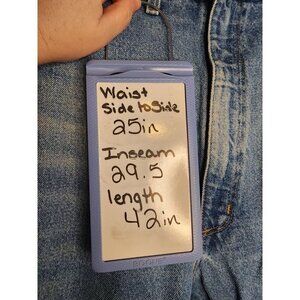 Waist
Side to Side
25in
Inseam
29.5
length
42in